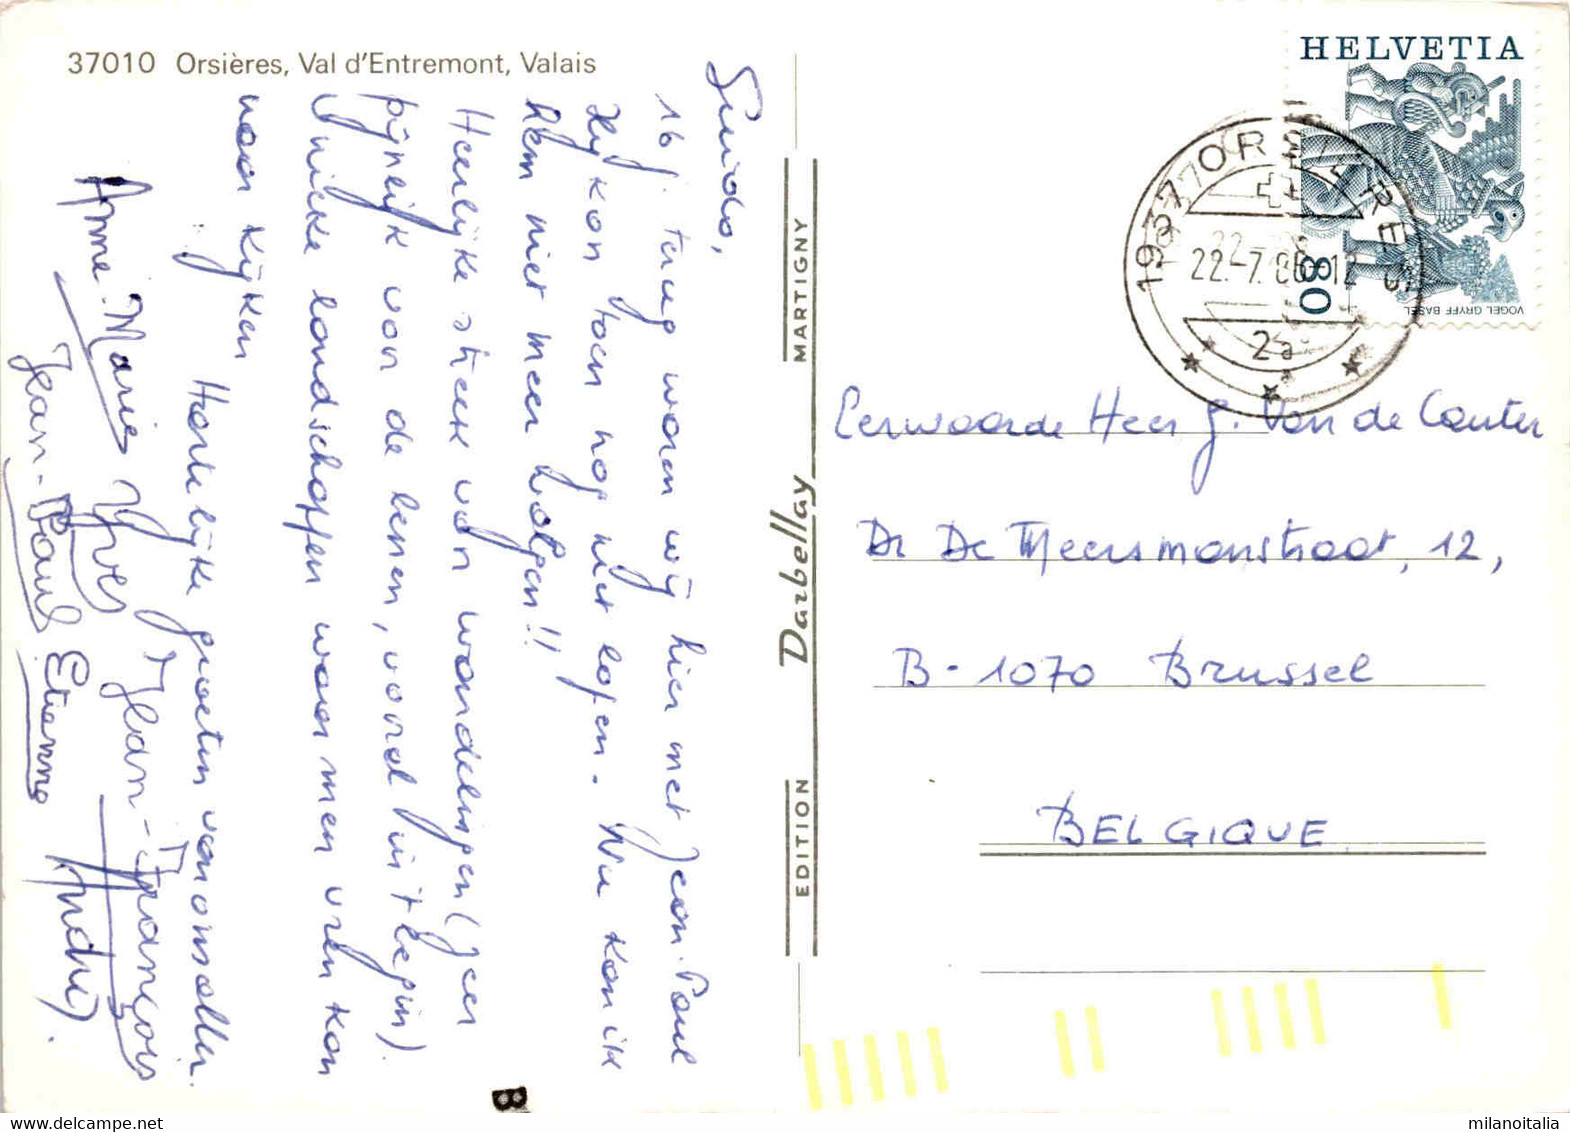 37010 Orsières, Val d'Entremont, Valais
Guido,
16 j. terug waren wij hier met Jean-Paul
Hij kon toen nog niet lopen. Nu kan ik
hem niet meer volgen!!
Heerlijke streek van wandelingen (zeer
pijnlijk voor de benen, vooral in 't begin).
Unieke landschappen waar men uren kan
naar kijken
Hartelijke groeten van ons allen.
Anne-Marie Yves Jean-François
Jean-Paul Etienne
EDITION Darbellay MARTIGNY
HELVETIA
80
VOGEL GRYFF BASEL
1937 ORSIERES
22.-7.86-12
2a
Eerwaarde Heer G. Van de Cauter
Dr De Meersmanstraat, 12,
B-1070 Brussel
BELGIQUE
B
milanoitalia